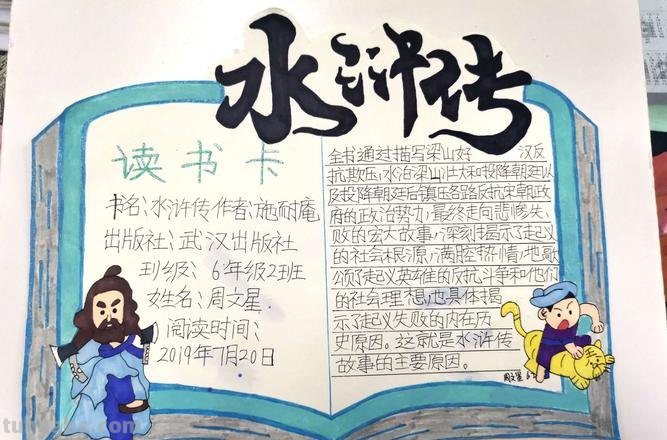 水浒传
读书卡
书名:水浒传作者:施耐庵
出版社:武汉出版社
班级:6年级2班
姓名:周文星
阅读时间:
2019年7月20日
全书通过描写梁山好 汉反
抗欺压,水泊梁山壮大和投降朝廷以
及投降朝廷后镇压各路反抗宋朝政
府的政治势力,最终走向悲惨失
败的宏大故事,深刻揭示了起义
的社会根源,满腔热情,地歌
颂了起义英雄的反抗斗争和他们
的社会理想,也具体揭
示了起义失败的内在历
史原因。这就是水浒传
故事的主要原因。
周文星